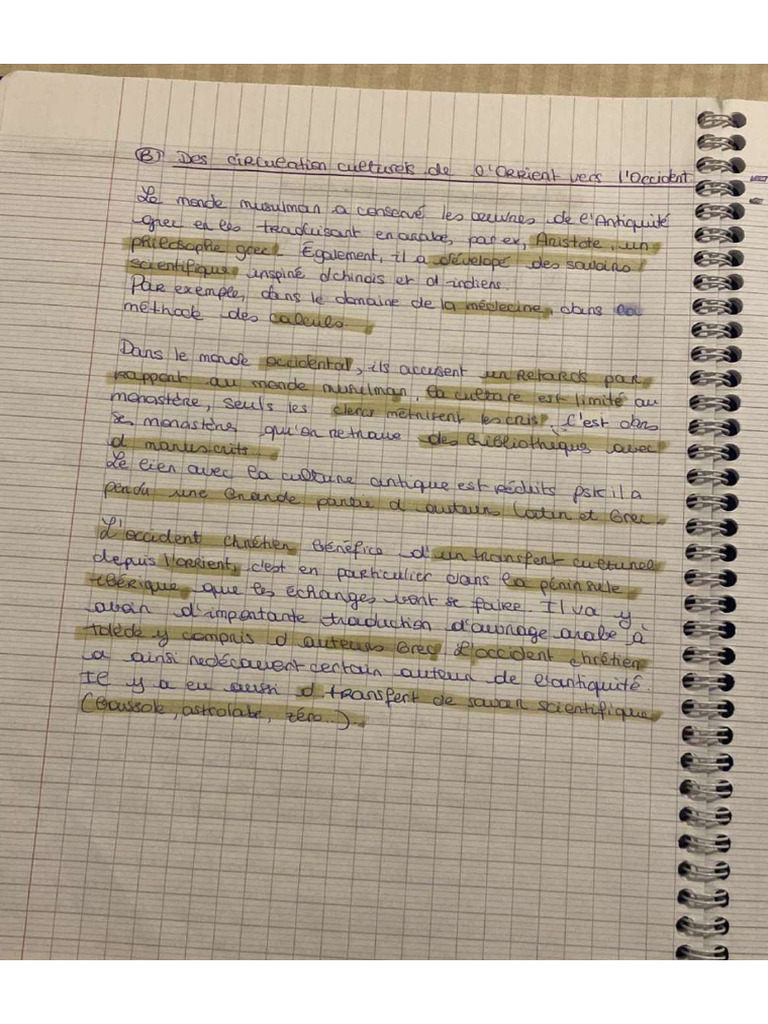 B) Des circulation culturels de l'Orrient vers l'Occident
Le monde musulman a conservé les œuvres de l'Antiquité
grec en les traduisant en arabe, par ex, Aristote, un
philosophe grec. Également, il a dévelopé des savoirs
scientifique inspiré d chinois et d indiens.
Par exemple, dans le domaine de la médecine, dans la
méthode des calculs.
Dans le monde occidental, ils accusent un retards par
rapport au monde musulman, la culture est limité au
monastère, seuls les clercs métrisent les cris. C'est dans
se monastère qu'on retrouve des Bibliothèque avec
d manuscrits.
Le lien avec la culture antique est réduits psk il a
perdu une Grande partie d auteurs latin et Grec.
L'occident chrétien Bénéfice d'un transfert culturel
depuis l'orrient, c'est en particulier dans la péninsule
ibérique que les échanges vont se faire. Il va y
avoir d'importante traduction d'ouvrage arabe à
tolède y compris d auteurs Grec. L'occident chrétien
a ainsi redécouvert certain auteur de l'antiquité.
Il y a eu aussi d transfert de savoir scientifique
(Boussole, astrolabe, zéro...).